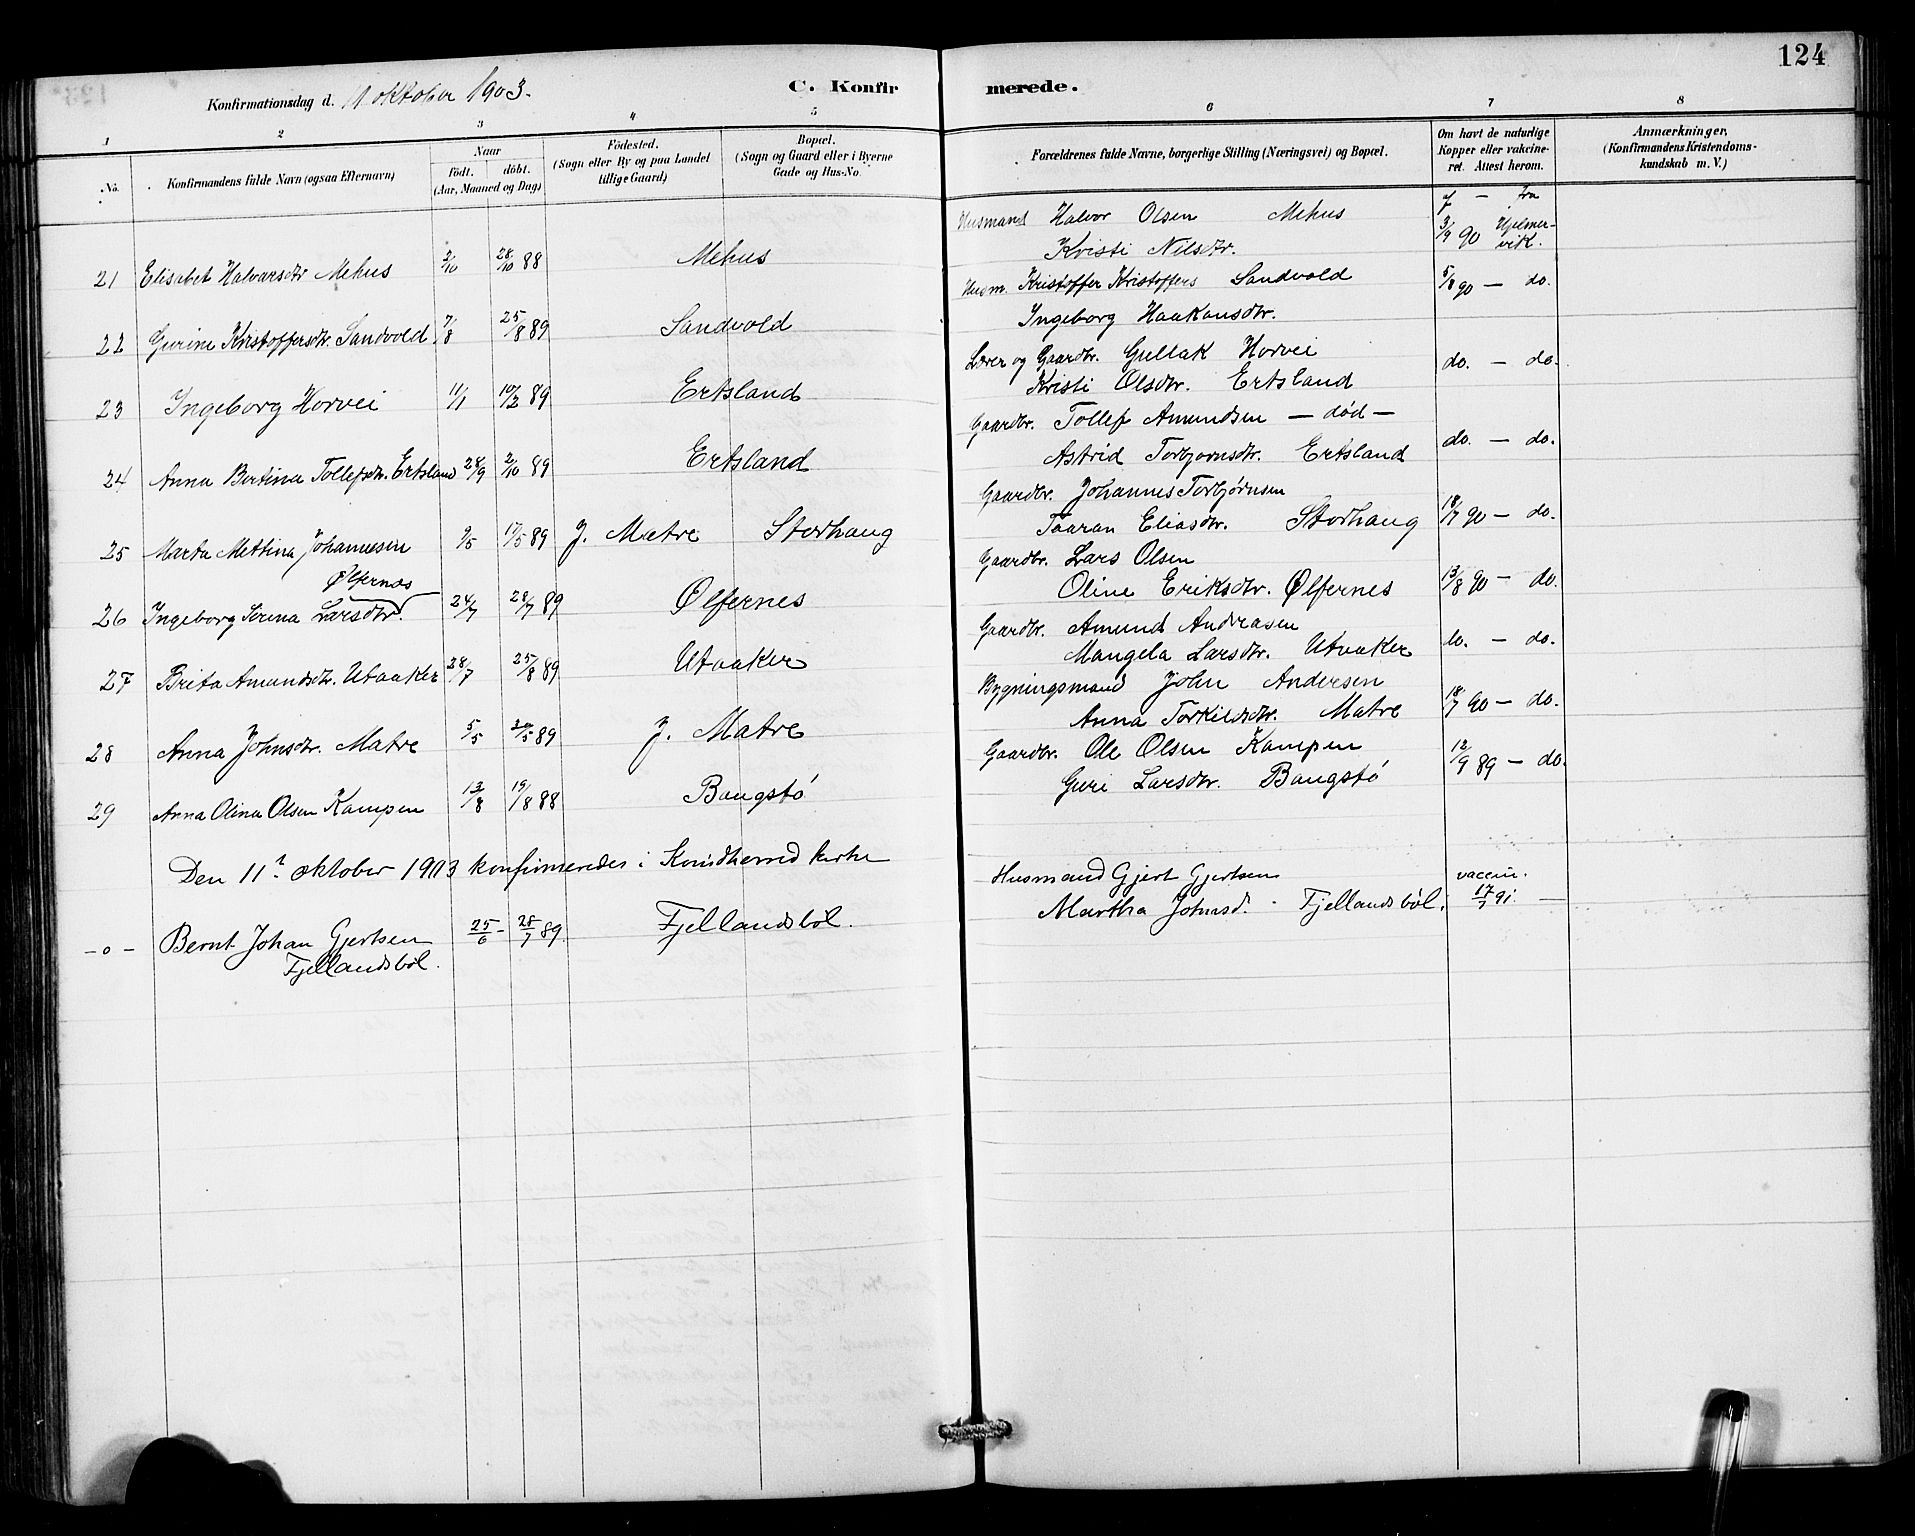 124
Konfirmationsdag d. 11 oktober 1903.
C. Konfirmerede.
1 2 3 4 5 6 7 8
No.
Konfirmandens fulde Navn (ogsaa Efternavn)
Naar
födt. döbt.
(Aar, Maaned og Dag)
Födested.
(Sogn eller By og paa Landet
tillige Gaard)
Bopæl.
(Sogn og Gaard eller i Byerne
Gade og Hus-No.
Forældrenes fulde Navne, borgerlige Stilling (Næringsvei) og Bopæl.
Om havt de naturlige
Kopper eller vakcine-
ret. Attest herom.
Anmærkninger,
(Konfirmandens Kristendoms-
kundskab m. V.)
21 Elisabet Halvarsdtr Mehus 3/10 28/10 88 Mehus
Husmand Halvor Olsen Mehus
Kristi Nilsdtr.
3/9 90 — fra Hjelmer-
vik.
22 Gurine Kristoffersdtr. Sandvold 7/8 25/8 89 Sandvold
Husm. Kristoffer Kristoffers Sandvold
Ingeborg Haakonsdtr.
5/8 90 — do.
23 Ingeborg Horvei 11/1 10/2 89 Ertsland
Lærer og Gaardbr. Gullak Horvei
Kristi Olsdtr. Ertsland
do. — do.
24 Anna Bertina Tollefsdtr. Ertsland 28/9 2/10 89 Ertsland
Gaardbr. Tollef Amundsen — död —
Astrid Torbjornsdtr. Ertsland
do. — do.
25 Marta Mettina Johannesen 9/5 17/5 89 J. Matre Storhaug
Gaardbr. Johannes Torbjørnsen
Taaran Eliasdtr. Storhaug
18/7 90 — do.
26 Ingeborg Serina Larsdtr. Ølfernæs 24/7 28/7 89 Ølfernes
Gaardbr. Lars Olsen
Oline Eriksdtr. Ølfernes
13/8 90 — do.
27 Brita Amundsdtr. Utaaker 28/7 25/8 89 Utaaker
Gaardbr. Amund Andrasen
Mangela Larsdtr. Utaaker
do. — do.
28 Anna Johnsdtr. Matre 5/5 20/5 89 J. Matre
Bygningsmand John Andersen
Anna Torkildsdtr. Matre
18/7 90 — do.
29 Anna Olina Olsen Kampen 13/8 19/8 88 Baugstö
Gaardbr. Ole Olsen Kampen
Guri Larsdtr. Baugstö
12/9 89 — do.
Den 11te oktober 1903 konfirmeredes i Kvindherred kirke
— o — Bernt Johan Gjertsen
Fjellandsböl. 25/6 — 28/7 89. Fjellandsböl.
Husmand Gjert Gjertsen
Martha Johnsd. - Fjellandsböl.
vaccin.
17/7 91. —